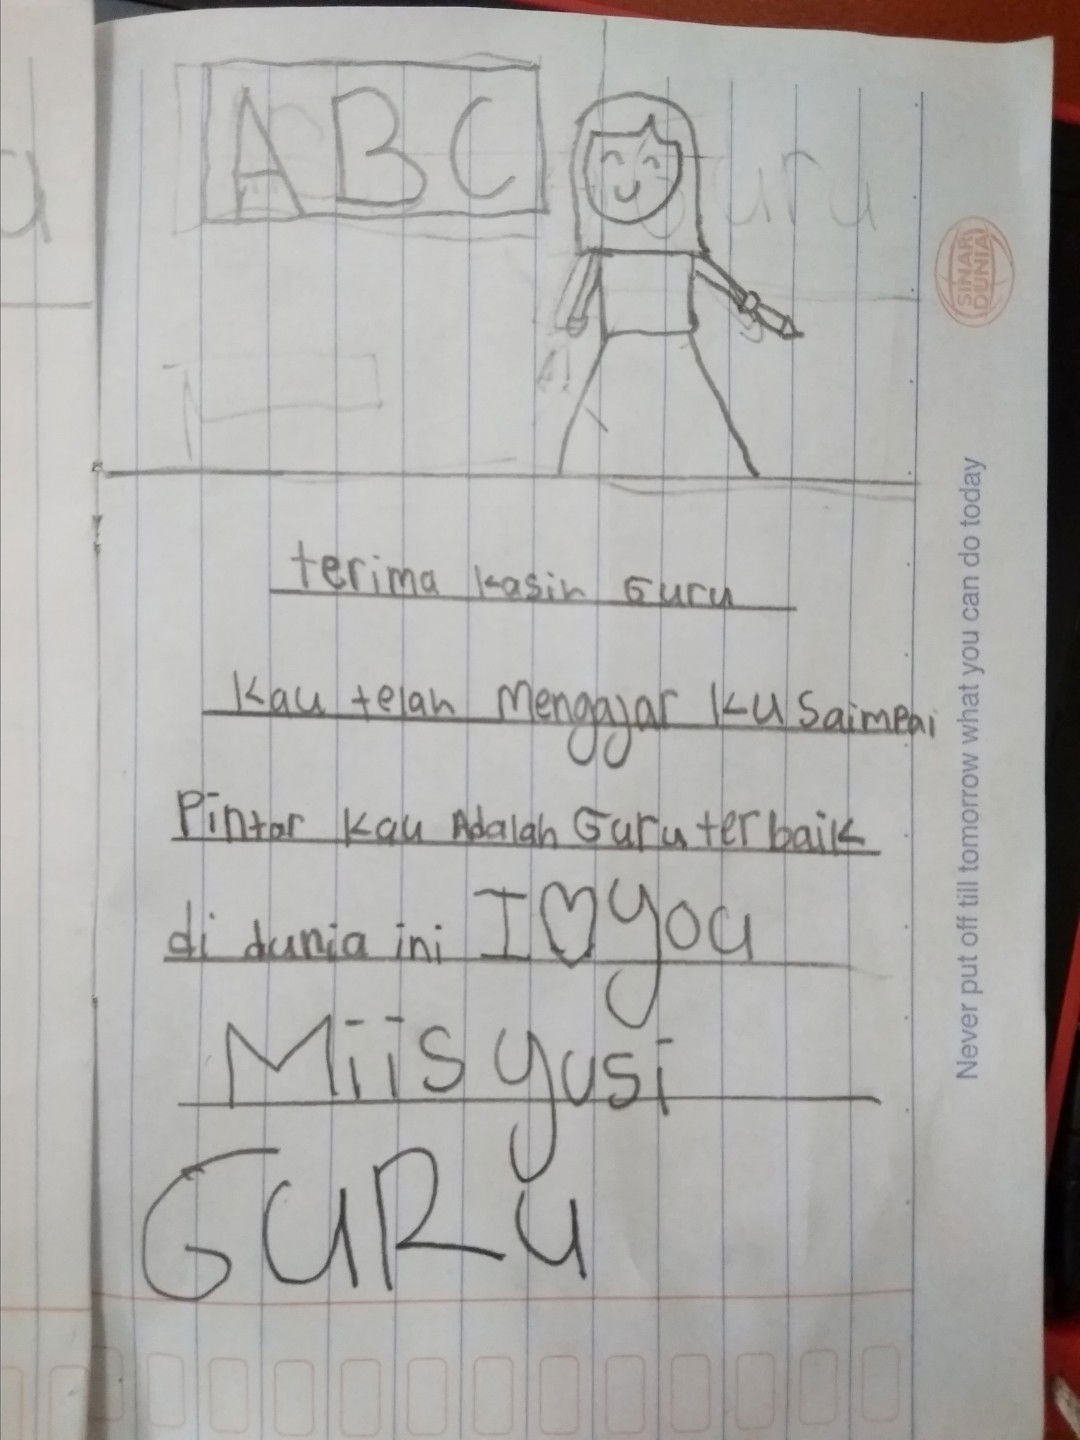 ABC
uru
SINAR
DUNIA
terima kasih Guru
Kau telah Mengajar ku Saimpai
Pintar kau Adalah Guru terbaik
di dunia ini I ♡ you
Miis yusi
GURu
Never put off till tomorrow what you can do today